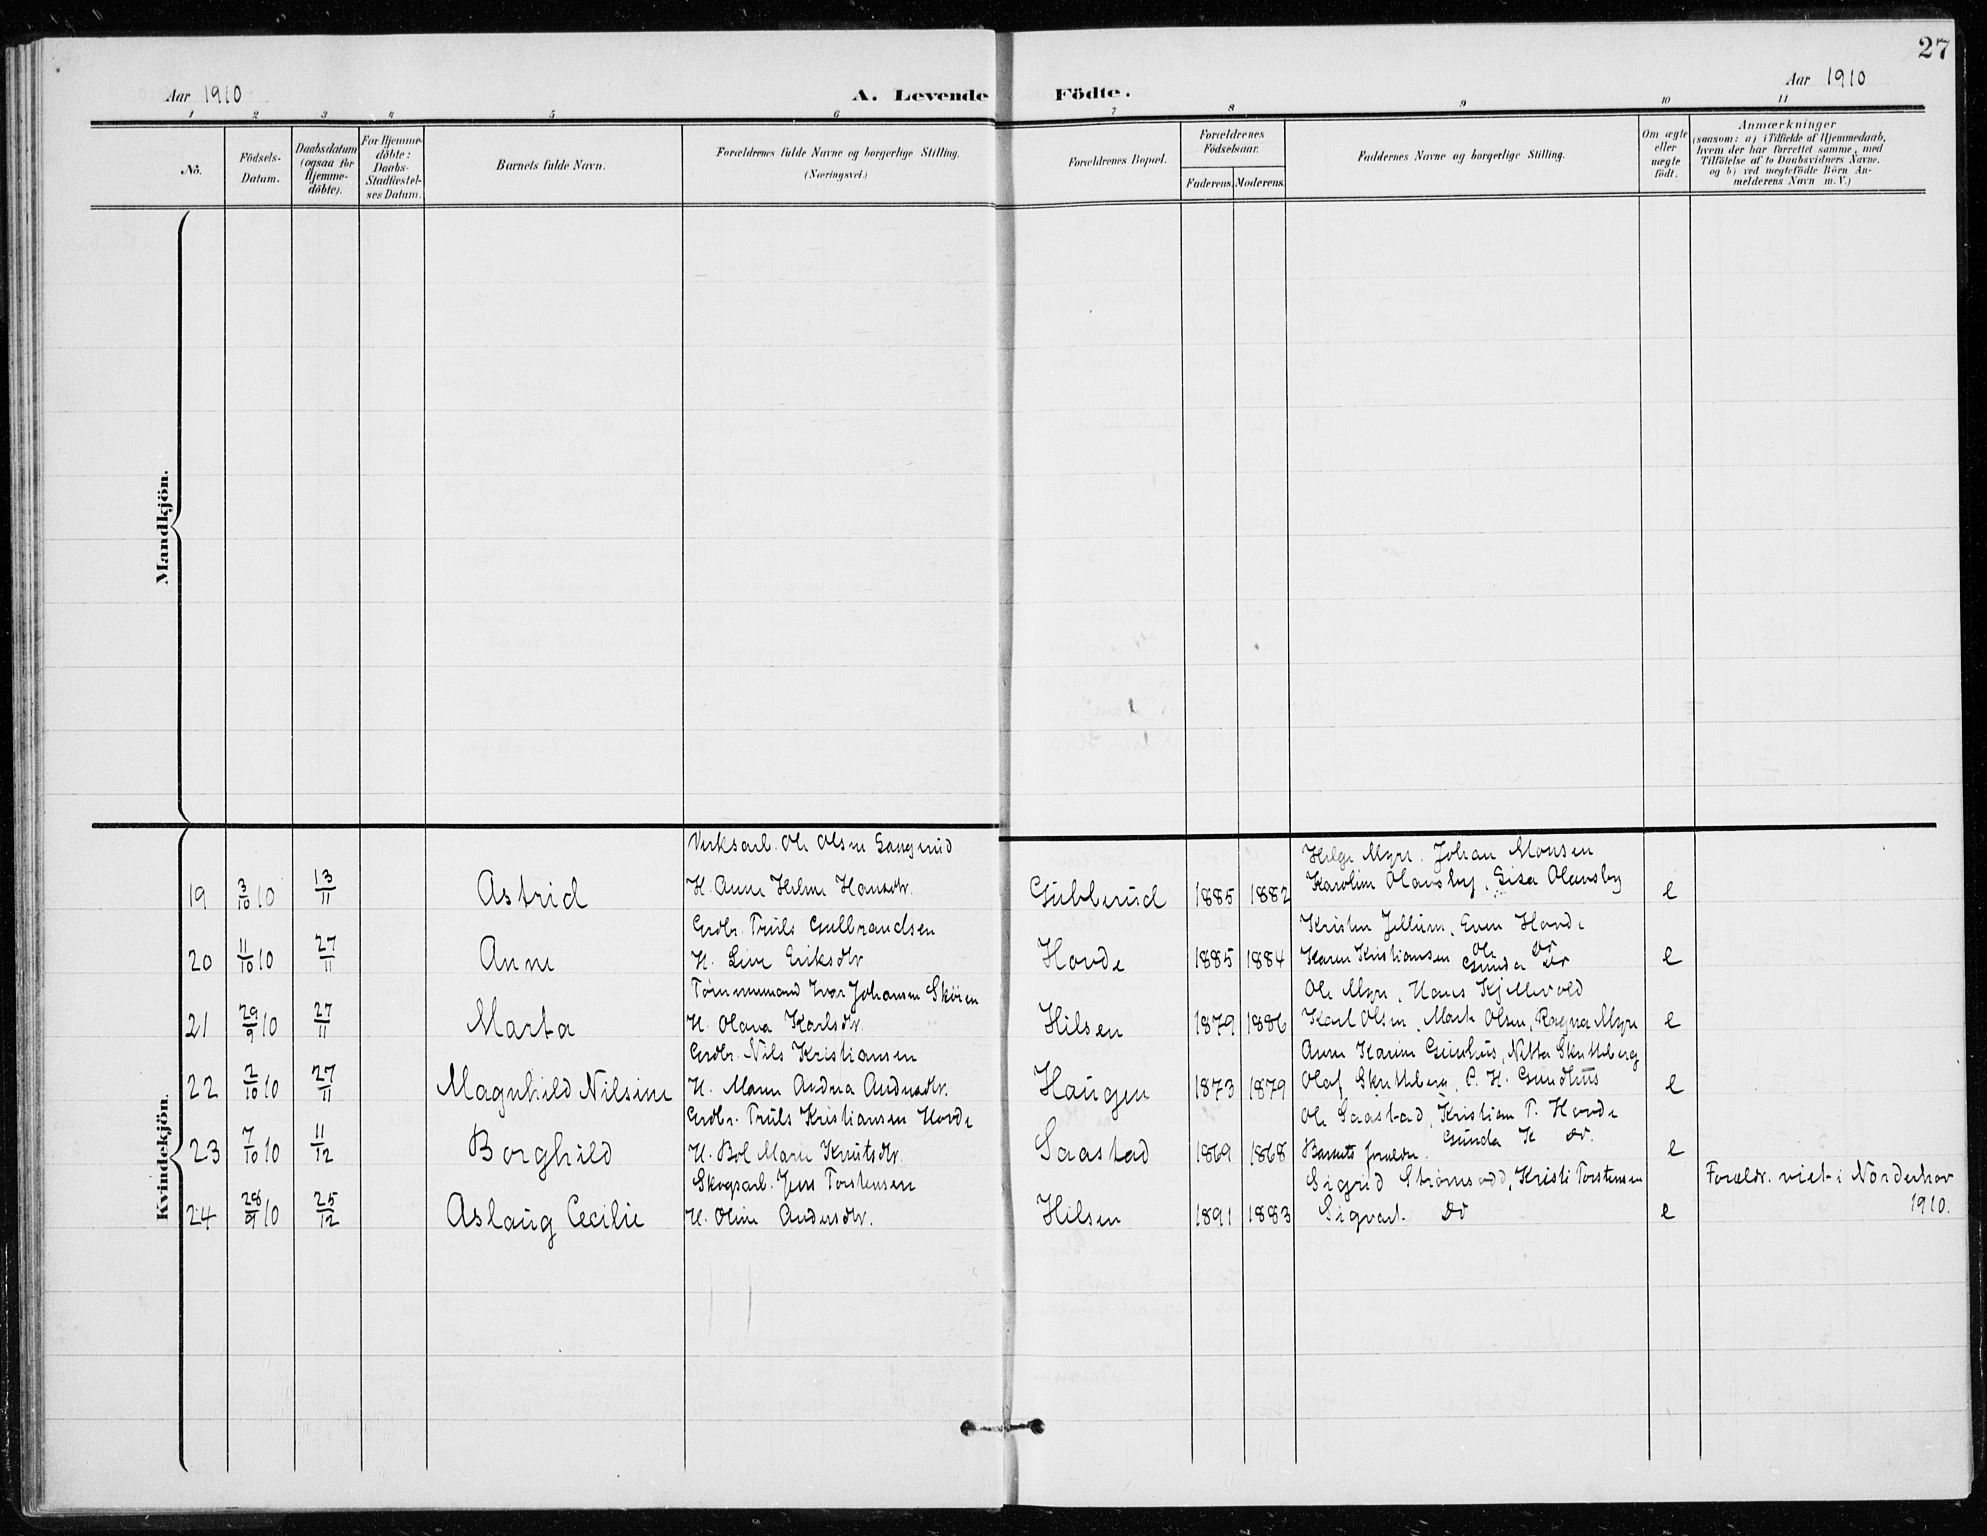 27
Aar 1910
A. Levende Födte.
Aar 1910
1 2 3 4 5 6 7 8 9 10 11
No.
Födsels-
Datum.
Daabsdatum
(ogsaa for
Hjemme-
döbte).
For Hjemme-
döbte:
Daabs-
Stadfæstel-
ses Datum.
Barnets fulde Navn.
Forældrenes fulde Navne og borgerlige Stilling.
(Næringsvei.)
Forældrenes Bopæl.
Forældrenes
Födselsaar.
Faderens. Moderens.
Faddernes Navne og borgerlige Stilling.
Om ægte
eller
uægte
födt.
Anmærkninger
(saasom: a) i Tilfælde af Hjemmedaab,
hvem der har forrettet samme, med
Tilföielse af to Daabsvidners Navne.
og b) ved uægtefödte Börn An-
melderens Navn m. V.)
Mandkjön.
Kvindekjön.
Verksarb. Ole Olsen Haugerud
Helge Myre. Johan Monsen
19 3/10 10 13/11 Astrid H. Anne Helene Hansdtr. Gubberud 1885 1882 Karoline Olavsby, Lisa Olavsby e
Grdbr. Truls Gulbrandsen
Kristen Jellum, Even Hovde
20 11/10 10 27/11 Anne H. Live Eriksdtr Hovde 1885 1884 Karen Kristiansen Ole Do Gunda Do e
Tømmermand Ivar Johansen Skøien
Ole Myre, Hans Kjellevold
21 29/9 10 27/11 Marta H. Olava Karlsdtr. Hilsen 1879 1886 Karl Olsen, Marte Olsen, Ragna Myre e
Grdbr. Nils Kristiansen
Anne Karine Gunhus, Netta Skuttelberg
22 2/10 10 27/11 Magnhild Nilsine H. Maren Andrea Andersdtr. Haugen 1873 1879 Olaf, P. H. Gundhus e
Grdbr. Truls Kristiansen Hovde
Ole Saastad, Kristian T. Hovde
23 7/10 10 11/12 Borghild H. Bol Marie Knutsdtr. Saastad 1869 1868 Barnets forældre. Gunda K Do. e
Skogsarb. Jens Torstensen
Sigrid Strømsodd, Kristi Torstensen
Forældr. viet i Norderhov
24 28/9 10 25/12 Aslaug Cecilie H. Oline Andersdtr. Hilsen 1891 1883 Sigvart Do e
1910.